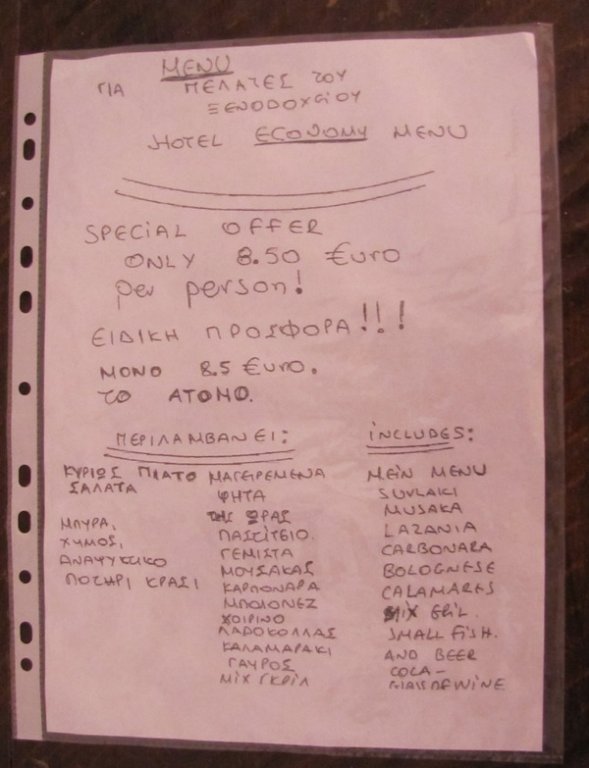 MENU
ΓΙΑ ΠΕΛΑΤΕΣ ΤΟΥ
ΞΕΝΟΔΟΧΕΙΟΥ
HOTEL ECONOMY MENU
SPECiAL OFFER
ONLY 8.50 €uro
per person!
ΕΙΔΙΚΗ ΠΡΟΣΦΟΡΑ!!!
ΜΟΝΟ 8.5 €uro.
ΤΟ ΑΤΟΜΟ.
ΠΕΡΙΛΑΜΒΑΝΕΙ:
ΚΥΡΙΩΣ ΠΙΑΤΟ
ΣΑΛΑΤΑ
ΜΠΥΡΑ,
ΧΥΜΟΣ,
ΑΝΑΨΥΚΤΙΚΟ
ΠΟΤΗΡΙ ΚΡΑΣΙ
ΜΑΓΕΙΡΕΜΕΝΑ
ΨΗΤΑ
ΤΗΣ ΩΡΑΣ
ΠΑΣΤΙΤΣΙΟ.
ΓΕΜΙΣΤΑ
ΜΟΥΣΑΚΑΣ
ΚΑΡΠΟΝΑΡΑ
ΜΠΟΛΟΝΕΖ
ΧΟΙΡΙΝΟ
ΛΑΔΟΚΟΛΛΑΣ
ΚΑΛΑΜΑΡΑΚΙ
ΓΑΥΡΟΣ
ΜΙΧ ΓΚΡΙΛ
iNCLUDES:
MEiN MENU
SUVLAKI
MUSAKA
LAZANIA
CARBONARA
BOLOGNESE
CALAMARES
MiX GRiL.
SMALL FiSH.
AND BEER
COCA-
GLASS OF WINE